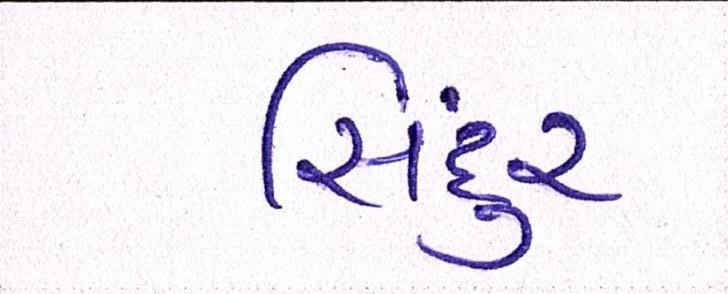 સિંદુર